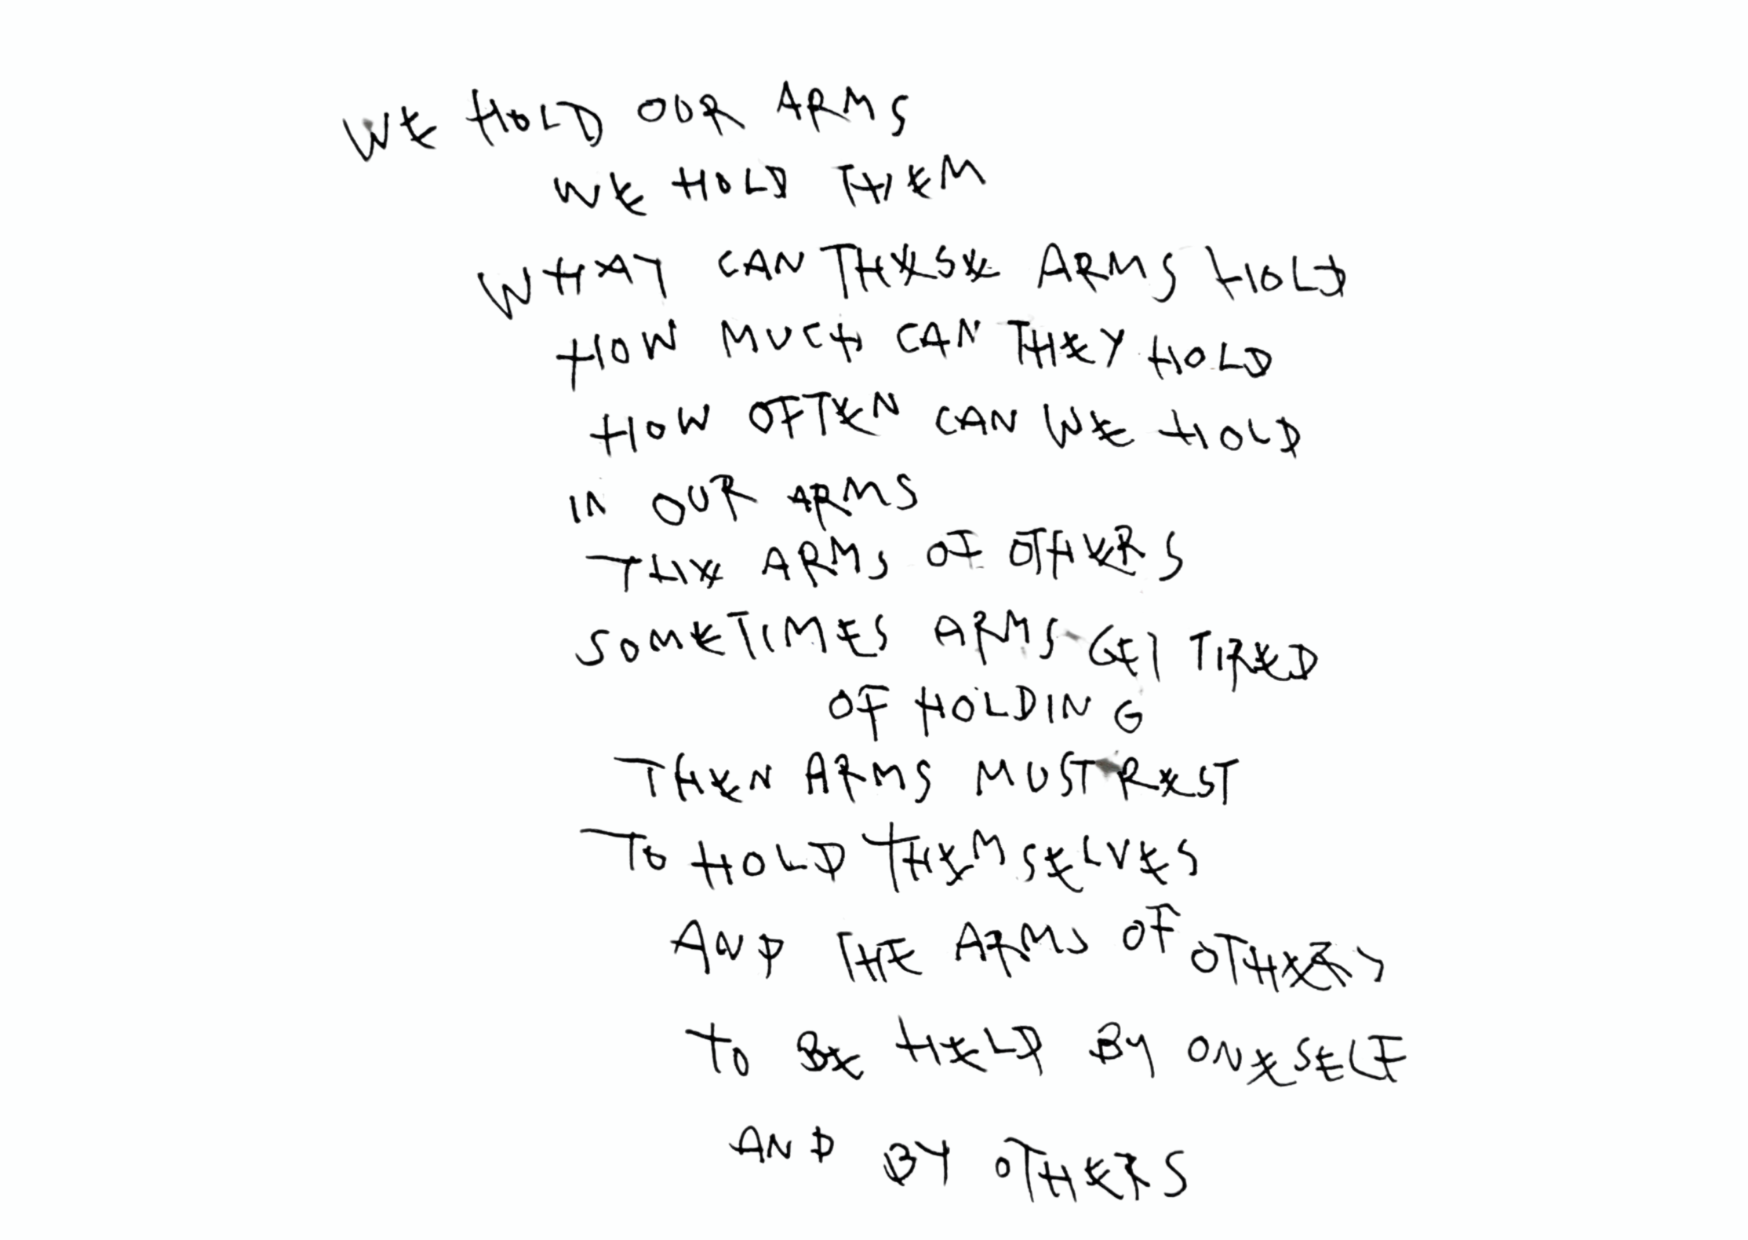 WE HOLD OUR ARMS
WE HOLD THEM
WHAT CAN THESE ARMS HOLD
HOW MUCH CAN THEY HOLD
HOW OFTEN CAN WE HOLD
IN OUR ARMS
THE ARMS OF OTHERS
SOMETIMES ARMS GET TIRED
OF HOLDING
THEN ARMS MUST REST
TO HOLD THEMSELVES
AND THE ARMS OF OTHERS
TO BE HELD BY ONESELF
AND BY OTHERS